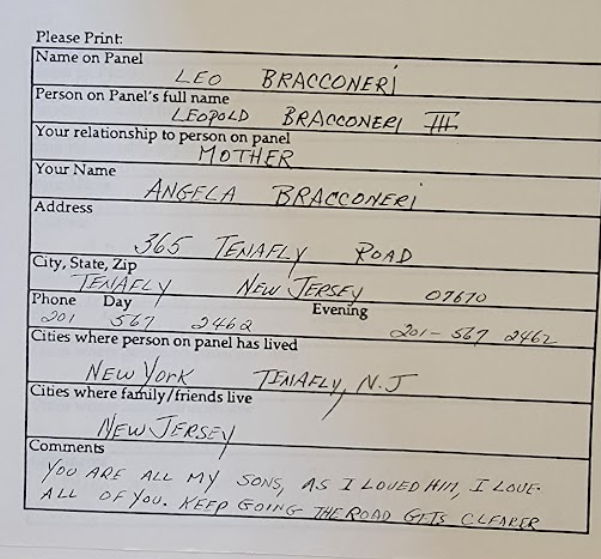 Please Print:
Name on Panel
LEO BRACCONERI
Person on Panel's full name
LEOPOLD BRACCONERI III
Your relationship to person on panel
MOTHER
Your Name
ANGELA BRACCONERI
Address
365 TENAFLY ROAD
City, State, Zip
TENAFLY NEW JERSEY 07670
Phone Day Evening
201 567 2462 201-567 2462
Cities where person on panel has lived
NEW YORK TENAFLY, N.J
Cities where family/friends live
NEW JERSEY
Comments
YOU ARE ALL MY SONS, AS I LOVED HIM, I LOVE
ALL OF YOU. KEEP GOING THE ROAD GETS CLEARER